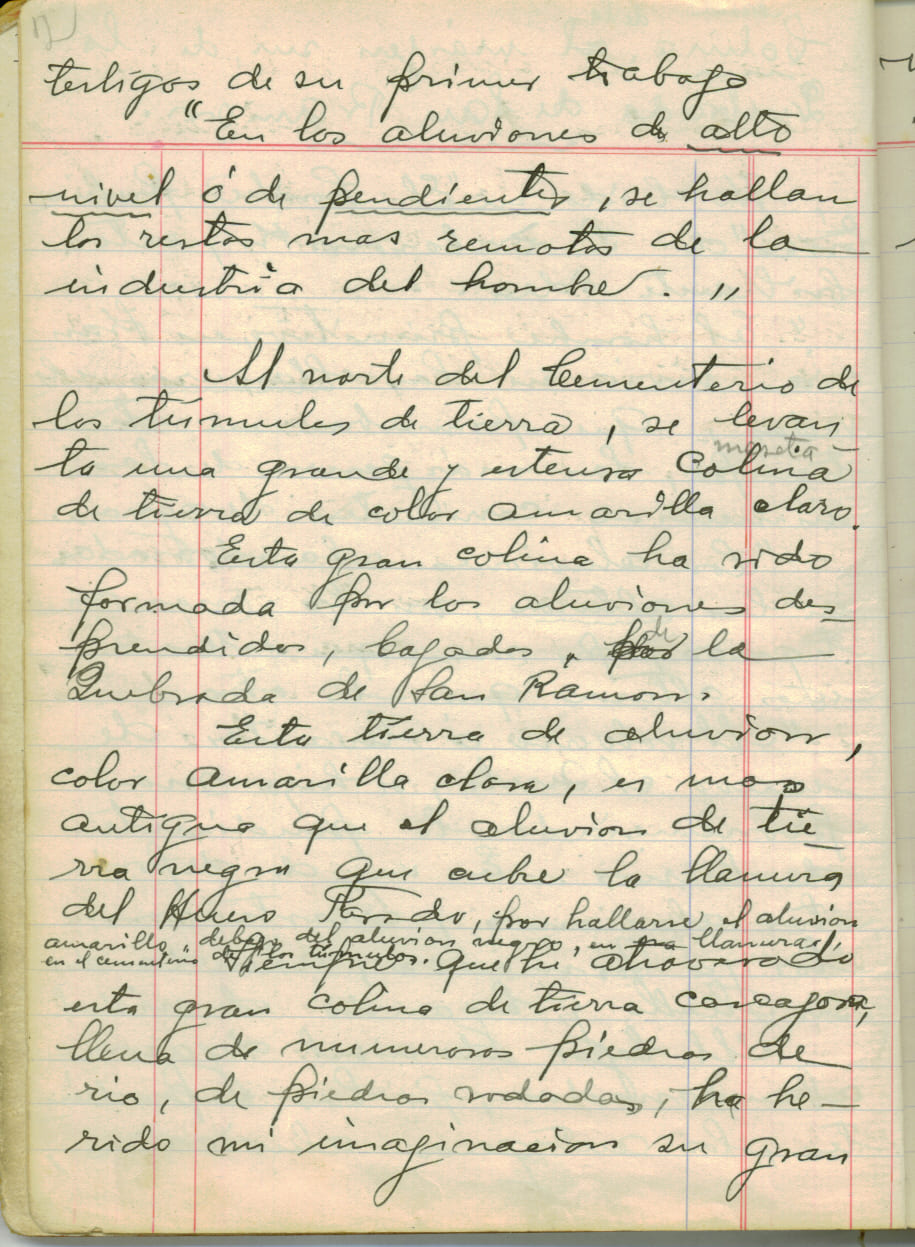 2
testigos de su primer trabajo
"En los aluviones de alto
nivel ó de pendientes, se hallan
los restos mas remotos de la
industria del hombre. "
Al norte del Cementerio de
los túmulos de tierra, se levan
meseta
ta una grande y estensa colina
de tierra de color amarilla claro.
Esta gran colina ha sido
formada por los aluviones des-
de
prendidos, bajados, por la
Quebrada de San Ramon.
Esta tierra de aluvion,
color amarilla clara, es mas
antigua que el aluvion de tie-
rra negra que cubre la llanura
del Huaso Parado, por hallarse el aluvion
amarillo, debajo del aluvion negro, en llanuras
en el cementerio de los túmulos. Siempre que he atravesado
esta gran colina de tierra cascajosa,
llena de numerosas piedras de
rio, de piedras rodadas, ha he-
rido mi imaginacion su gran